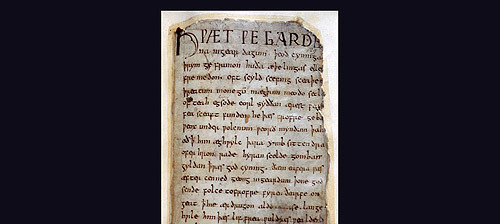 HǷÆT ǷE GARDE
na ingear dagum. þeod cyninga
þrym ge frunon huða æþelingas elle
fre medon. oft scyld scefing sceaþe
þreatum monegū mægþum meodo setl
of teah egsode eorl syððan ærest
fea sceaft funden he þæs frofre geba
ƿeox under ƿolcnum ƿeorð myndum þah
oð ꝥ him æghƿylc þara ymb sittendra
ofer hron rade hyran scolde gomban
gyldan ꝥ ƿæs god cyning. ðæm eafera ƿæs
æfter cenned geong ingeardum þone god
sende folce tofrofre fyren ðearfe on
geat ꝥ hie ær drugon aldor ase. lange
hƿile him þæs lif frea ƿuldres ƿealde